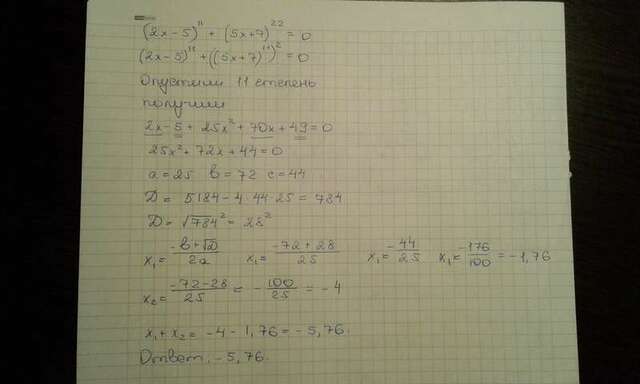 (2x-5)^11 + (5x+7)^22 = 0
(2x-5)^11 + ((5x+7)^11)^2 = 0
Опустили 11 степень
получили
2x - 5 + 25x^2 + 70x + 49 = 0
25x^2 + 72x + 44 = 0
a = 25 b = 72 c = 44
D = 5184 - 4·44·25 = 784
D = √784^2 = 28^2
x1 = (-b+√D)/2a x1 = (-72+28)/25 x1 = -44/25 x1 = -176/100 = -1,76
x2 = (-72-28)/25 = -100/25 = -4
x1 + x2 = -4 - 1,76 = -5,76.
Ответ. -5,76.